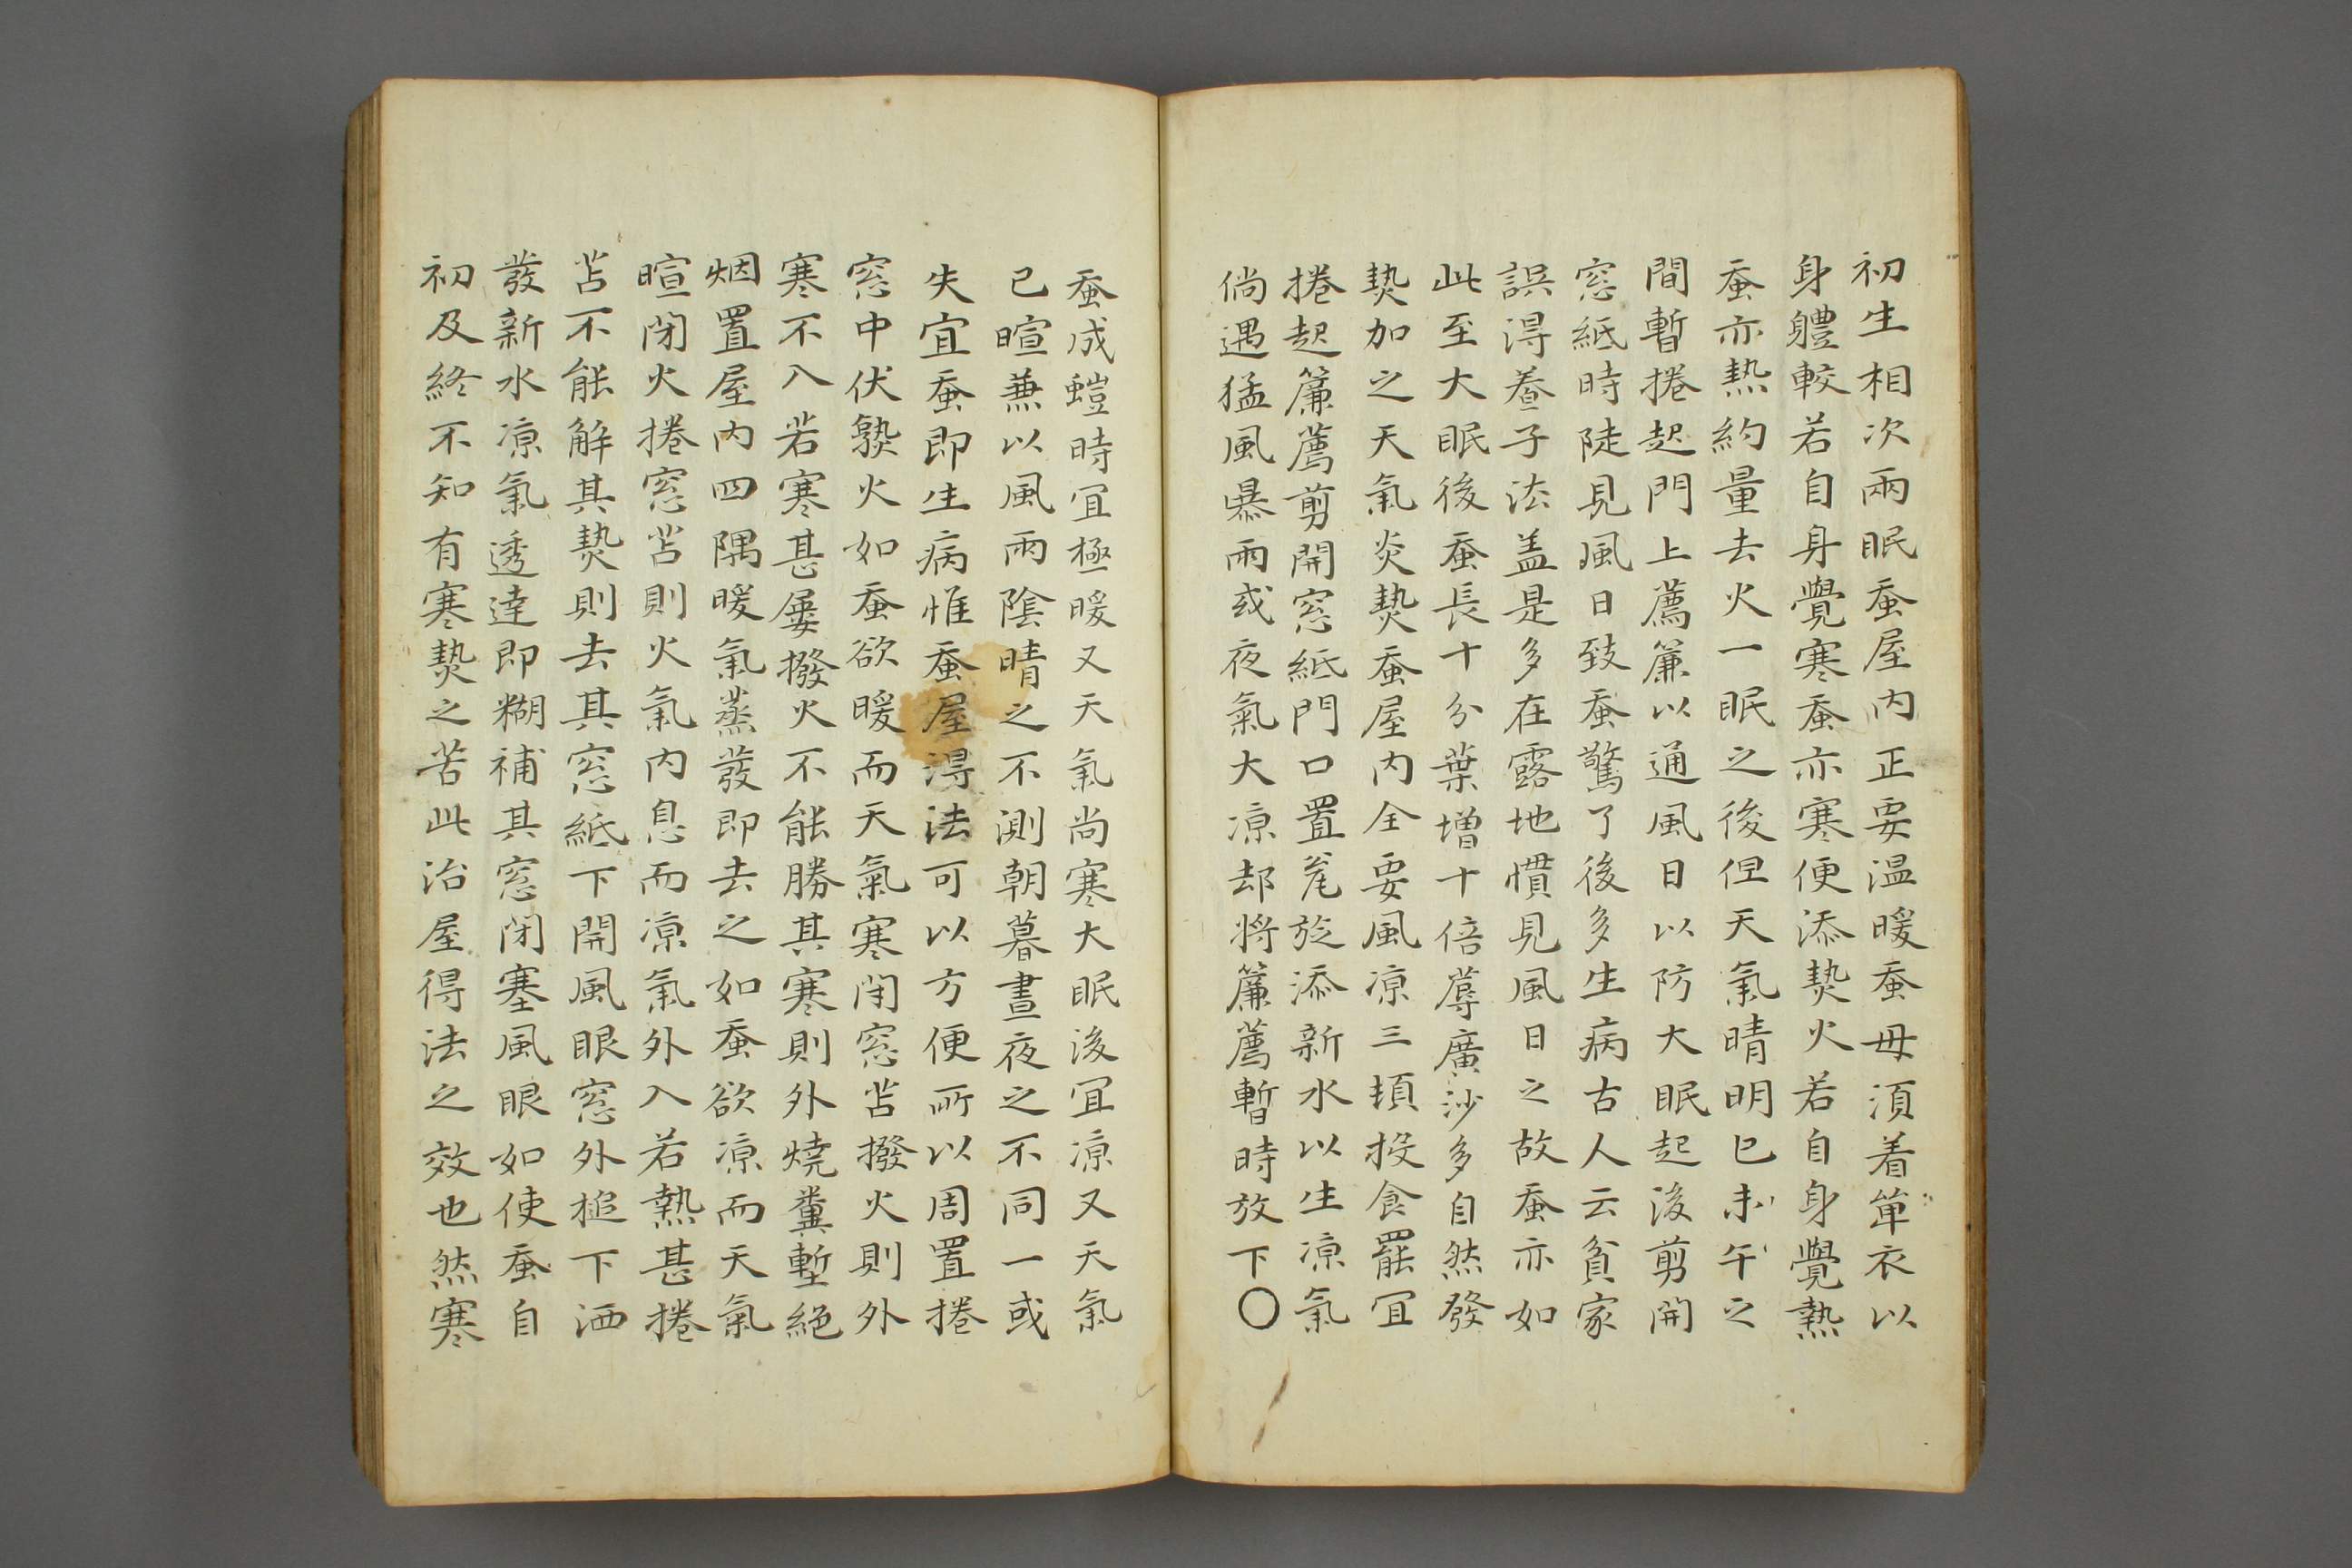 初生相次兩眠蚕屋内正要温暖蚕母須着单衣以
身軆較若自身覺寒蚕亦寒便添𤍠火若自身覺熱
蚕亦熱約量去火一眠之後但天氣晴明巳未午之
間暫捲起門上薦簾以通風日以防大眠起後剪開
窓紙時陡見風日致蚕驚了後多生病古人云貧家
誤淂養子法盖是多在露地慣見風日之故蚕亦如
此至大眠後蚕長十分葉增十倍蓐廣沙多自然發
𤍠加之天氣炎𤍠蚕屋内全要風凉三頓投食罷冝
捲起簾薦剪開窓紙門口置瓮旋添新水以生凉氣
倘遇猛風暴雨或夜氣大凉却將簾薦暫時放下〇
蚕成螘時冝極暖又天氣尚寒大眠後冝凉又天氣
已暄兼以風雨陰晴之不測朝暮晝夜之不同一或
失宜蚕即生病惟蚕屋淂法可以方便所以周置捲
窓中伏𤍠火如蚕欲暖而天氣寒閉窓苫撥火則外
寒不入若寒甚屢撥火不能勝其寒則外燒糞墼絕
烟置屋内四隅暖氣蒸發即去之如蚕欲凉而天氣
暄閉火捲窓苫則火氣内息而凉氣外入若熱甚捲
苫不能解其𤍠則去其窓紙下開風眼窓外搥下洒
發新水凉氣透達即糊補其窓閉塞風眼如使蚕自
初及終不知有寒𤍠之苦此治屋得法之效也然寒